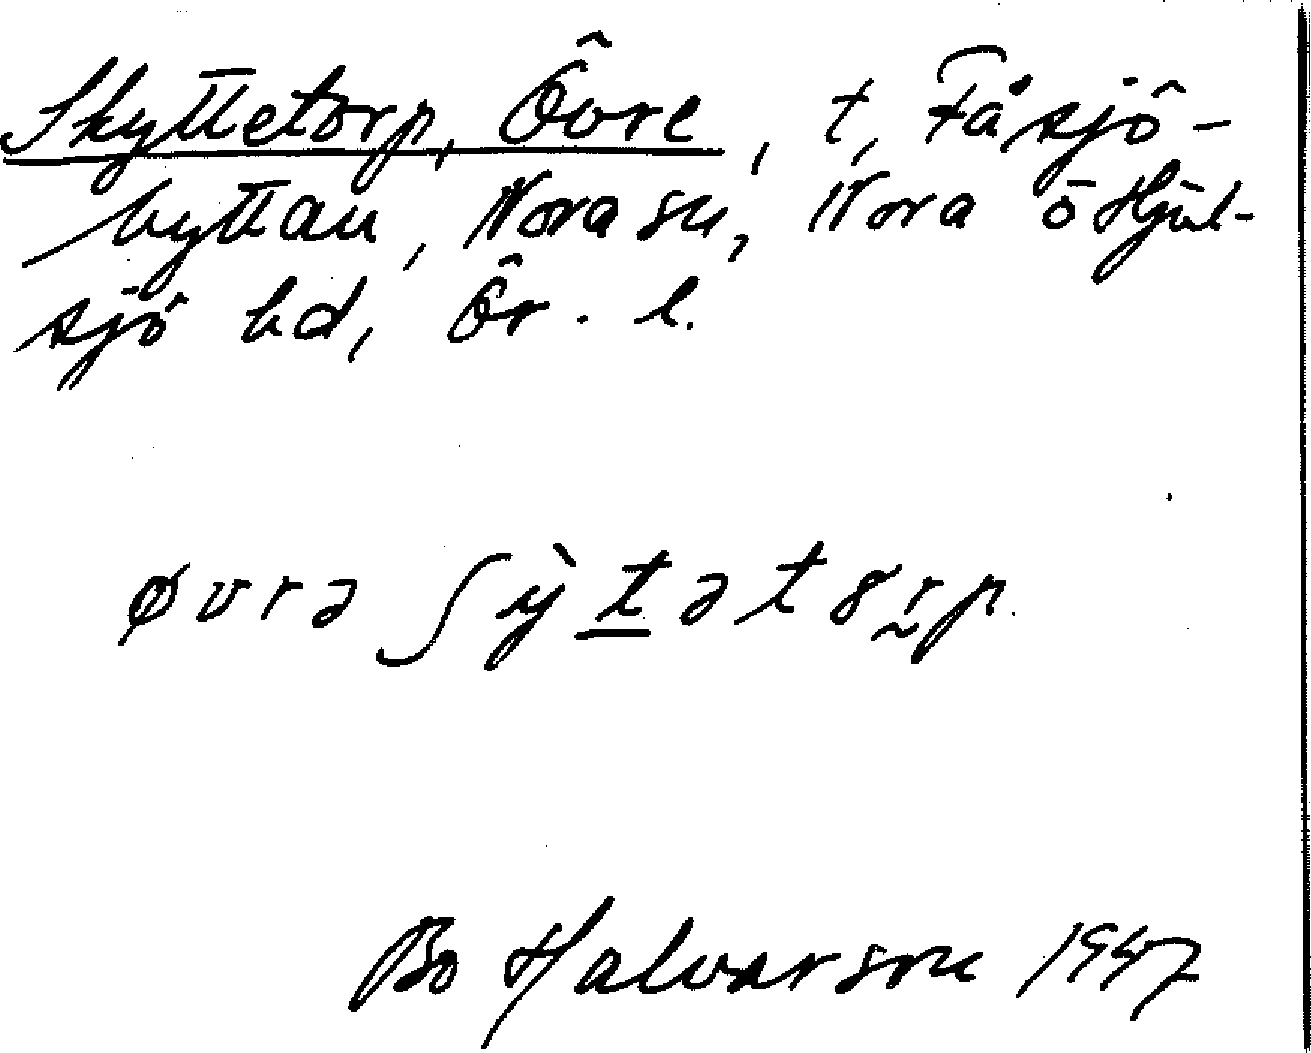 Skyttetorp, Övre, t, Fåsjö-
hyttan, Nora sn, Nora o Hjul-
sjö bd, Ör. l.
øvrə ʃỳtətȣrp.
Bo Halvarson 1947